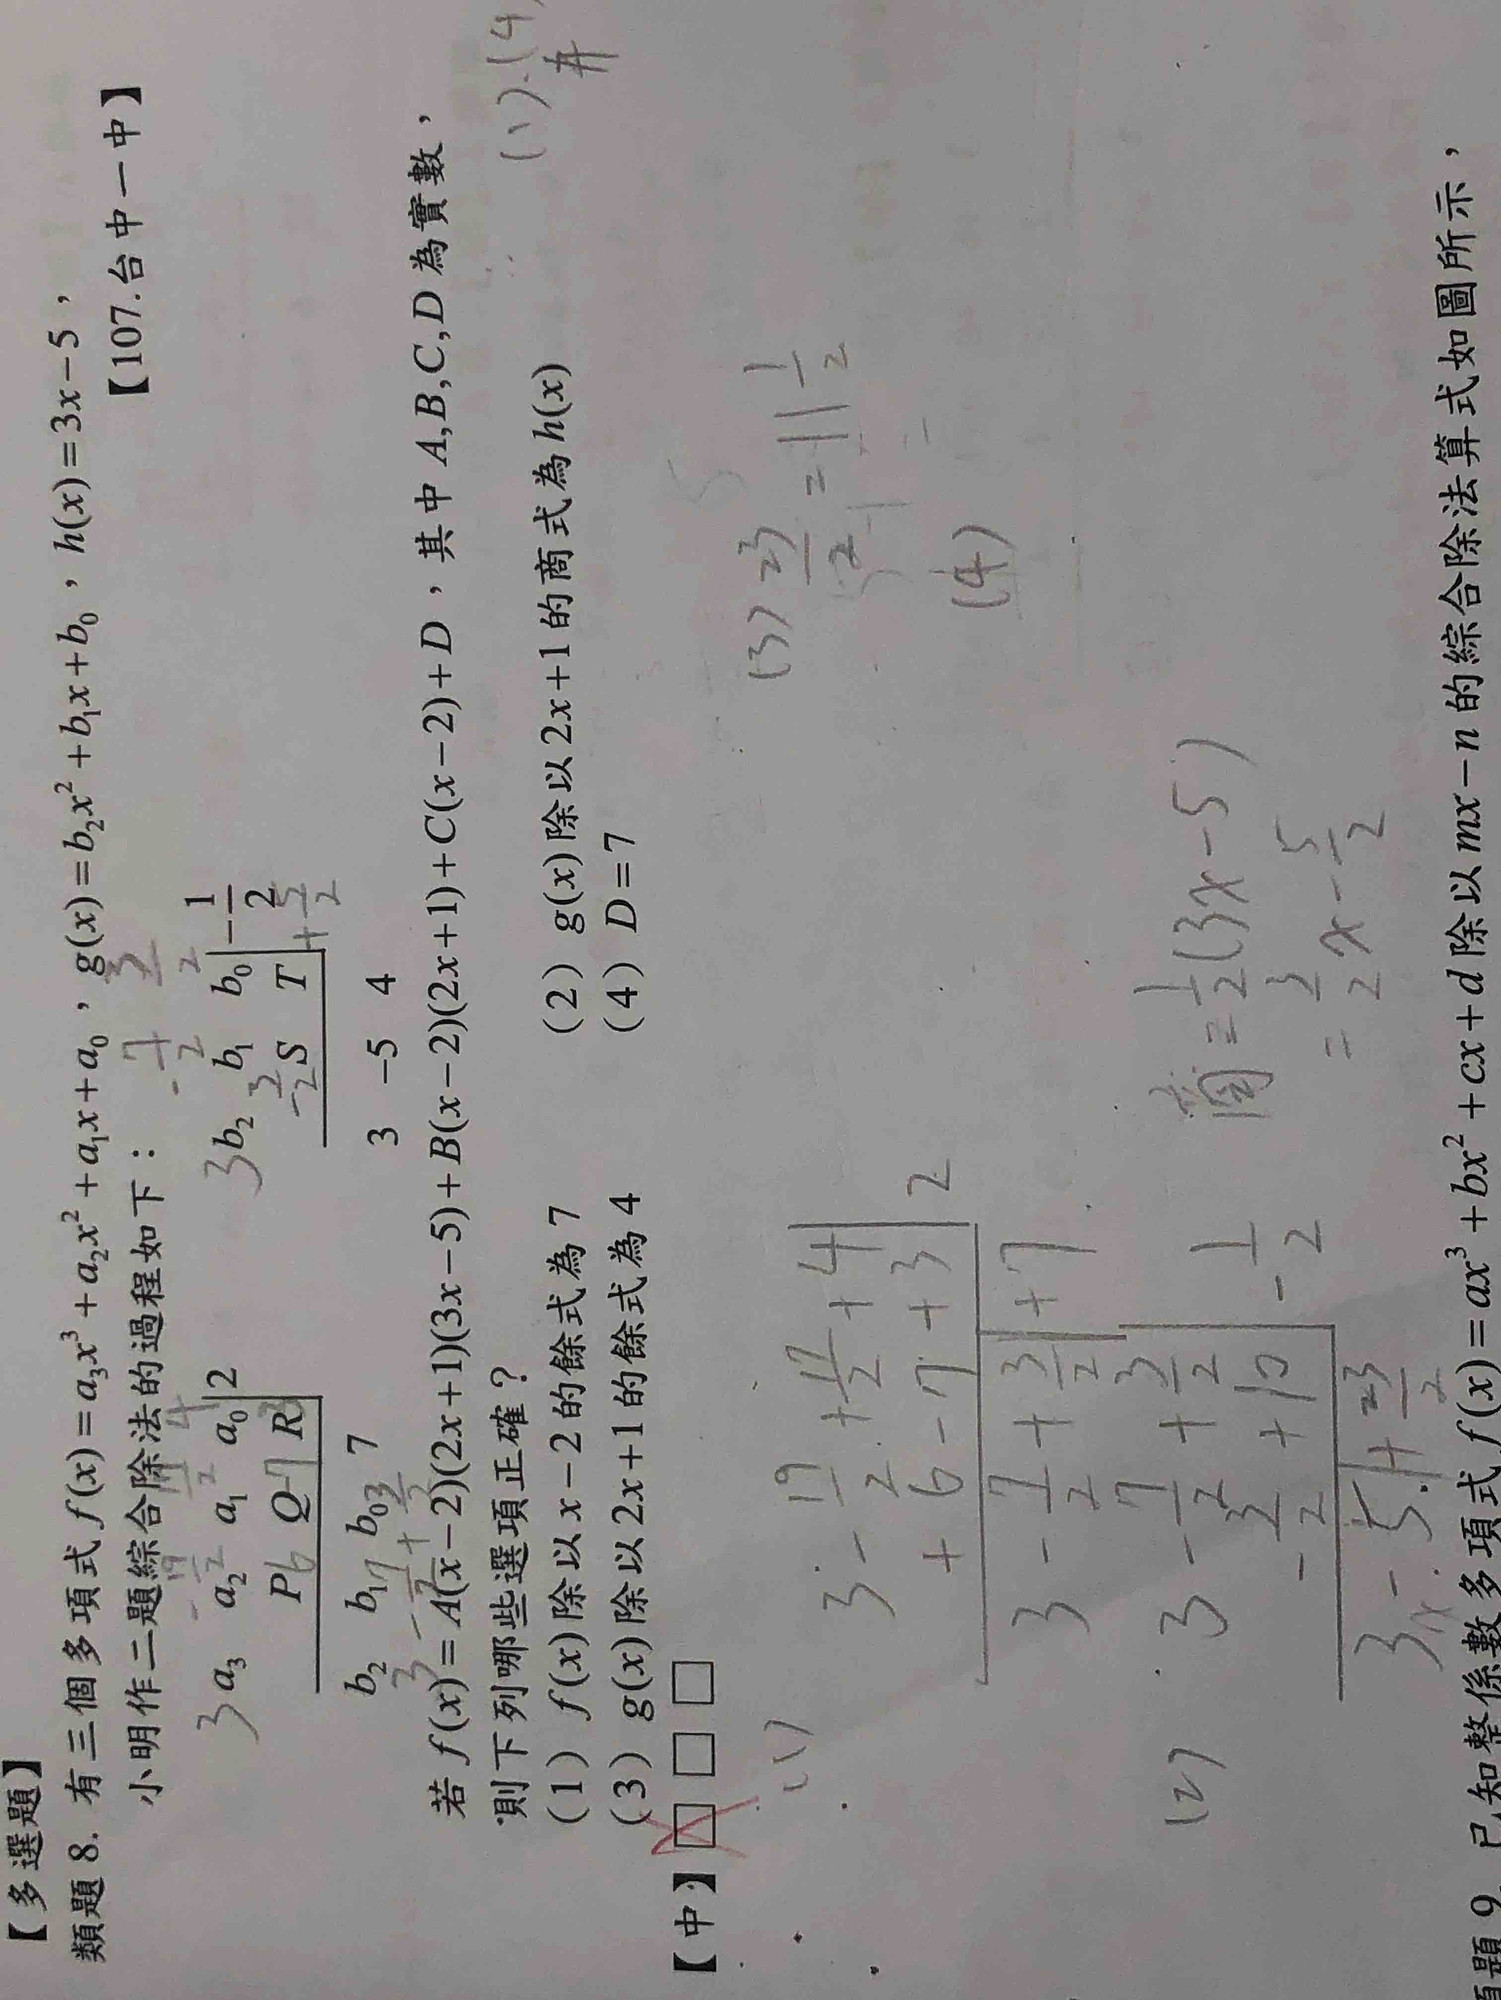 【多選題】
類題 8. 有三個多項式 f(x)=a₃x³+a₂x²+a₁x+a₀，g(x)=b₂x²+b₁x+b₀，h(x)=3x−5，
小明作二題綜合除法的過程如下： 【107.台中一中】
3 a₃ a₂ a₁ a₀ 2
P Q R
b₂ b₁ b₀ 7
3 b₂ b₁ b₀ −1/2
S T
3 −5 4
若 f(x)=A(x−2)(2x+1)(3x−5)+B(x−2)(2x+1)+C(x−2)+D，其中 A,B,C,D 為實數，
則下列哪些選項正確？ (1).(4)
（1）f(x)除以 x−2 的餘式為 7 （2）g(x)除以 2x+1 的商式為 h(x)
（3）g(x)除以 2x+1 的餘式為 4 （4）D=7
【中】□ □ □
(1) 3 −19/2 +17/2 +4 2
+6 −7 +3
3 −7/2 +3/2 +7
(2) 3 −7/2 +3/2 −1/2
−3/2 +10
商=1/2(3x−5)
=3/2x−5/2
(3) 23/2 = 11 1/2
(4)
已知整係數多項式 f(x)=ax³+bx²+cx+d 除以 mx−n 的綜合除法算式如圖所示，